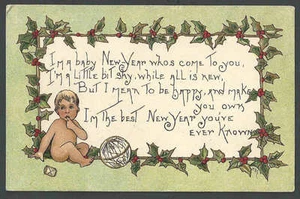 I'm a baby New-Year whos come to you,
I'm a little bit shy, while all is new,
But I mean to be happy, and make
you own
I'm the best New Year you've
ever known